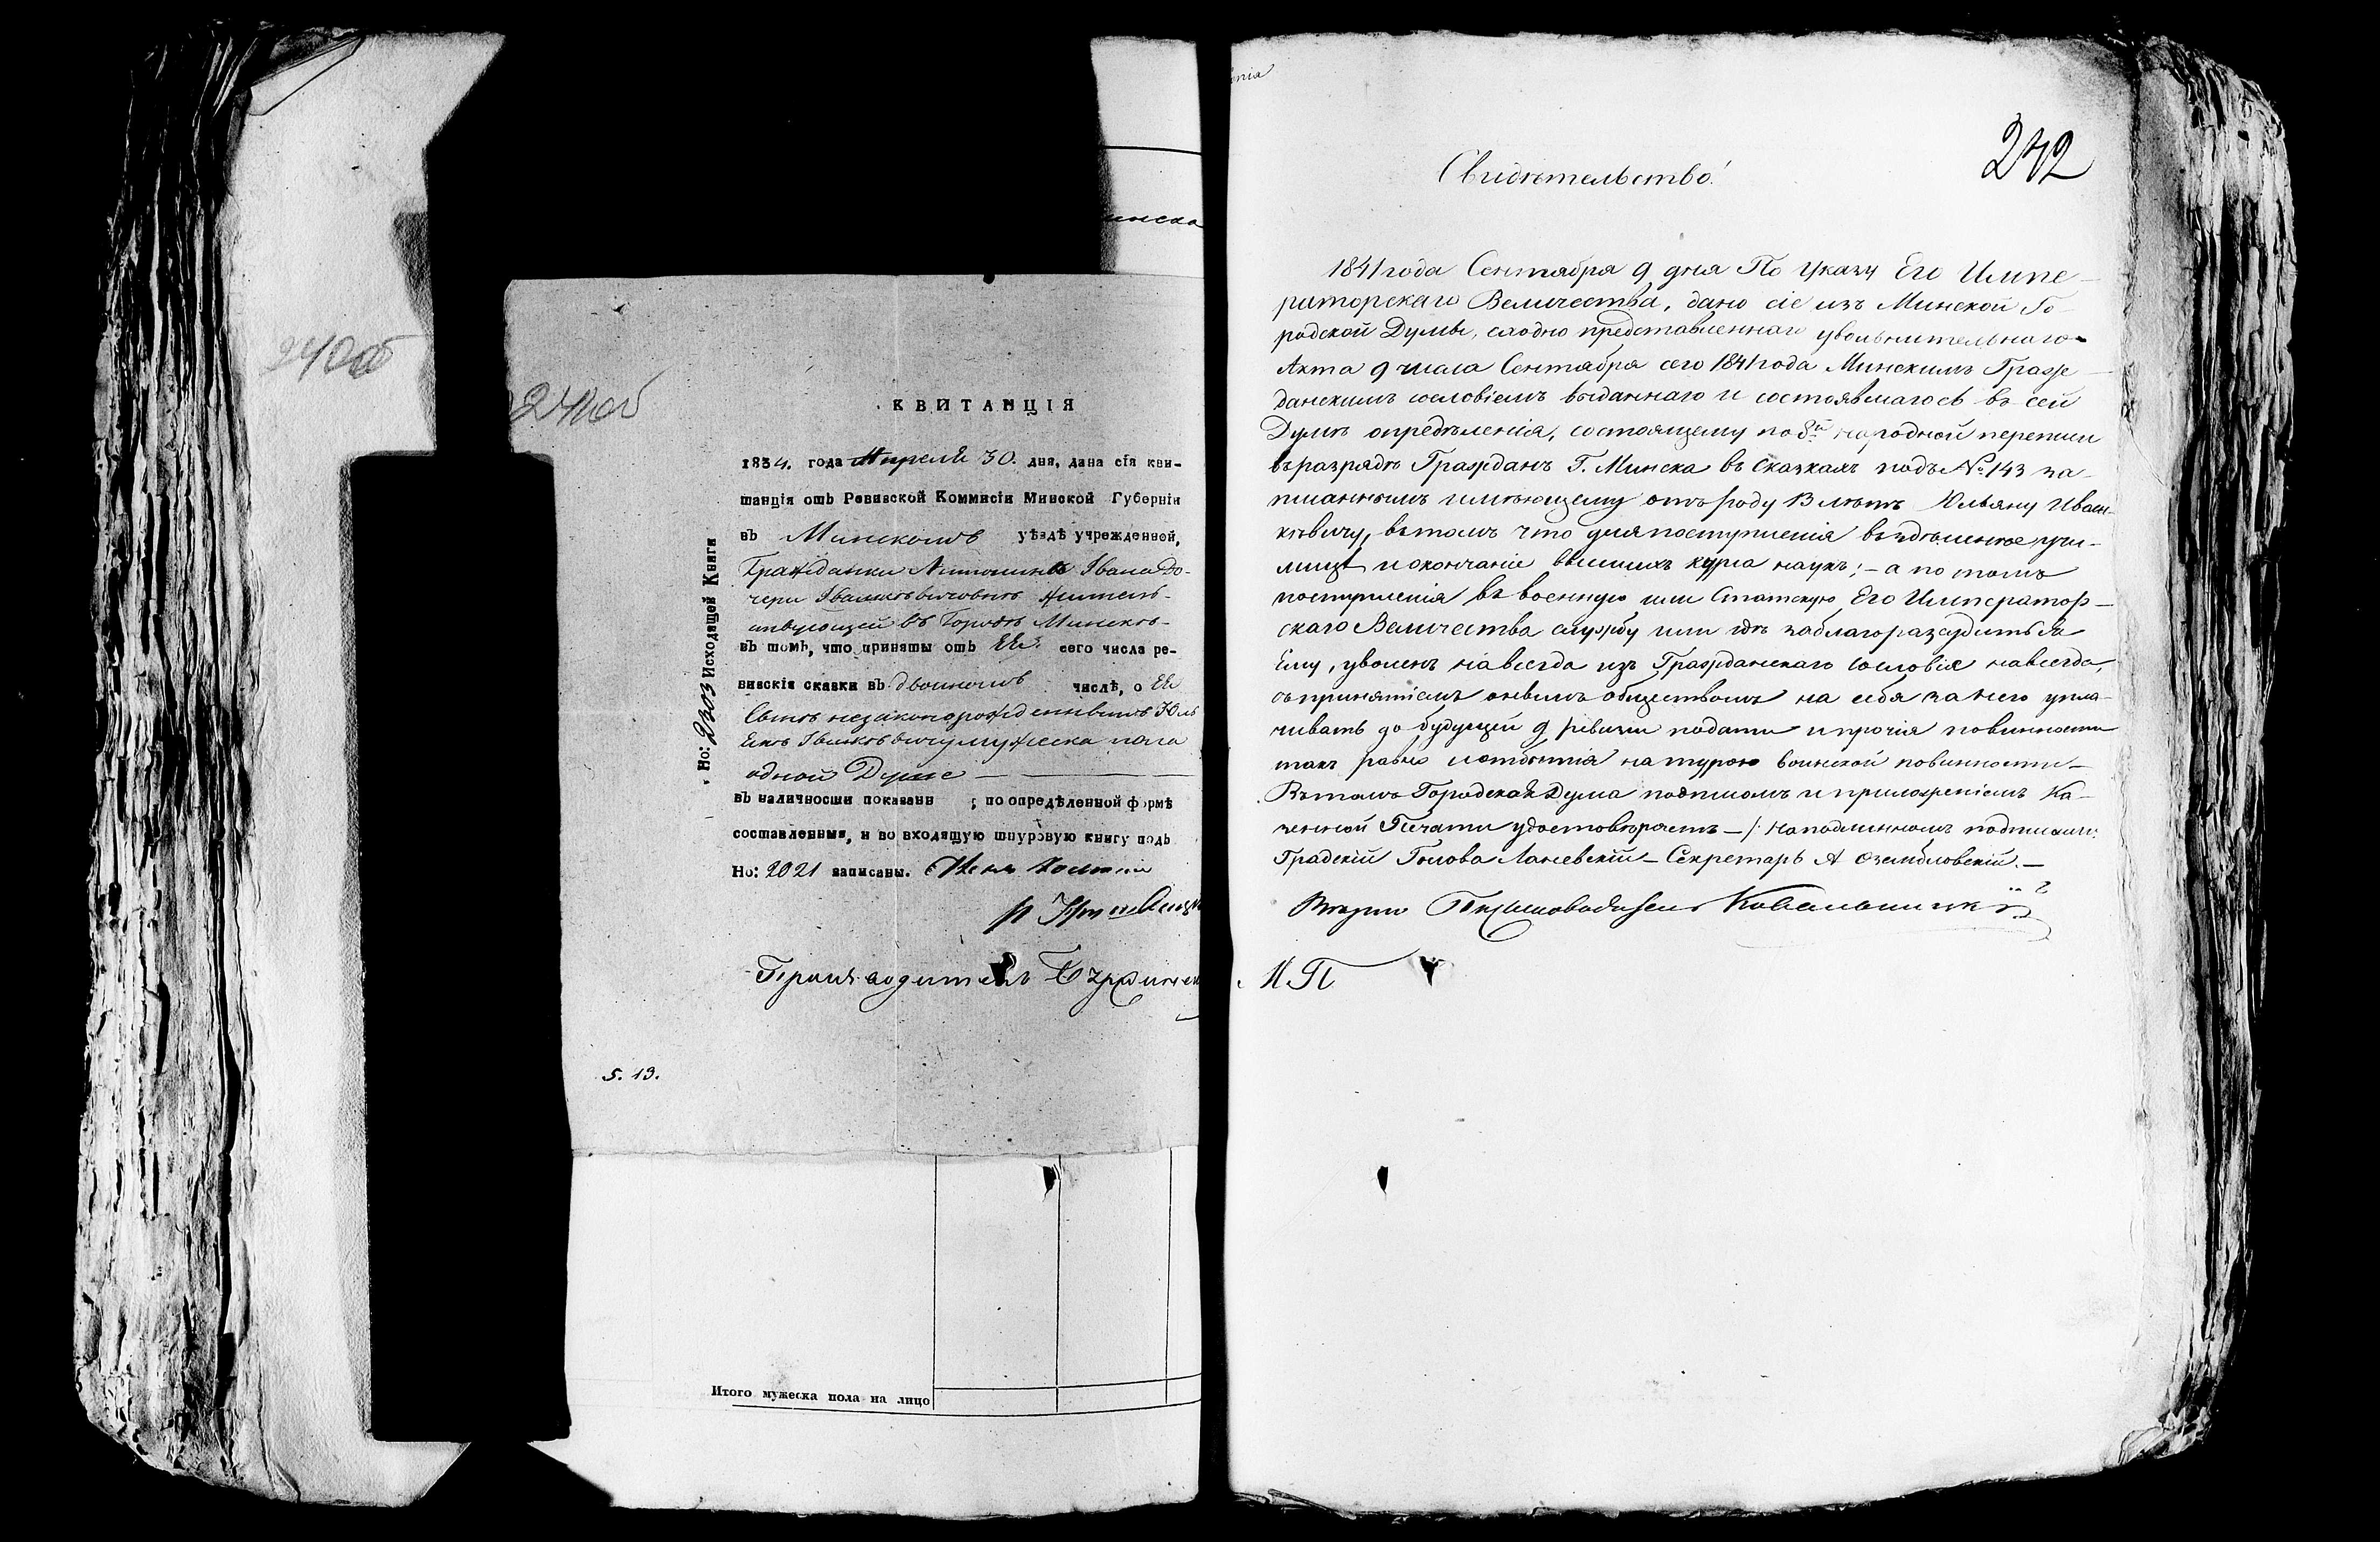 240об
241об
КВИТАНЦІЯ
1834. года Апреля 30. дня, дана сія кви-
танція отъ Ревизской Коммисіи Минской Губерніи
въ Минскомъ уѣздѣ учрежденной,
Гражданки Антонины Ивана до-
чери Ивашкевичовны жител-
ствующей въ Городѣ Минскѣ
въ томъ, что приняты отъ Ея сего числа ре-
визскія сказки въ двоиномъ числѣ, о Ея
Сынѣ незаконорожденнымъ Юль
мужеска пола
одной Душе
въ наличности показанн ; по опредѣленной формѣ
составленныя, и во входящую шнуровую книгу подъ
Но: 2021 записаны.
Производитель
Но: 2303 Исходящей Книги
5. 13.
Итого мужеска пола на лицо
инска
енія
242
Свидѣтельство
1841 года Сентября 9 дня По Указу Его Импе-
раторскаго Величества, дано сіе изъ Минской Го-
родской Думы, сходно представленнаго увольнительнаго
Акта 9 числа Сентября сего 1841 года Минскимъ Граж-
данскимъ сословіемъ выданнаго и состоявшагось въ сей
Думѣ опредѣленія, состоящему по 8й народной переписи
въ разрядѣ Гражданъ Г. Минска въ сказкахъ подъ № 143 за-
писаннымъ имѣющему отъ роду 13 лѣтъ Юльяну Иваш-
кѣвичу, въ томъ что для поступленія въ учи-
лище и окончаніе высшихъ курса наукъ; - а по томъ
поступленія въ военную или Статскую Его Император-
скаго Величества службу или гдѣ заблагоразсудиться
Ему, уволенъ навсегда изъ Гражданскаго сословія навсегда,
съ принятіемъ онымъ обществомъ на себя за него упла-
чивать до будущей 9 ревизіи подати и прочія повинности
такъ равно и отбытія натурою воинской повинности-
Въ томъ Городская Дума подписомъ и приложеніемъ Ка-
зенной Печати удостовѣряетъ - /: на подлинномъ подписали:
Градскій Голова Ланевскій - Секретарь А Озембловскій. -
Вѣрно Письмоводитель Ковальницкій
М.П